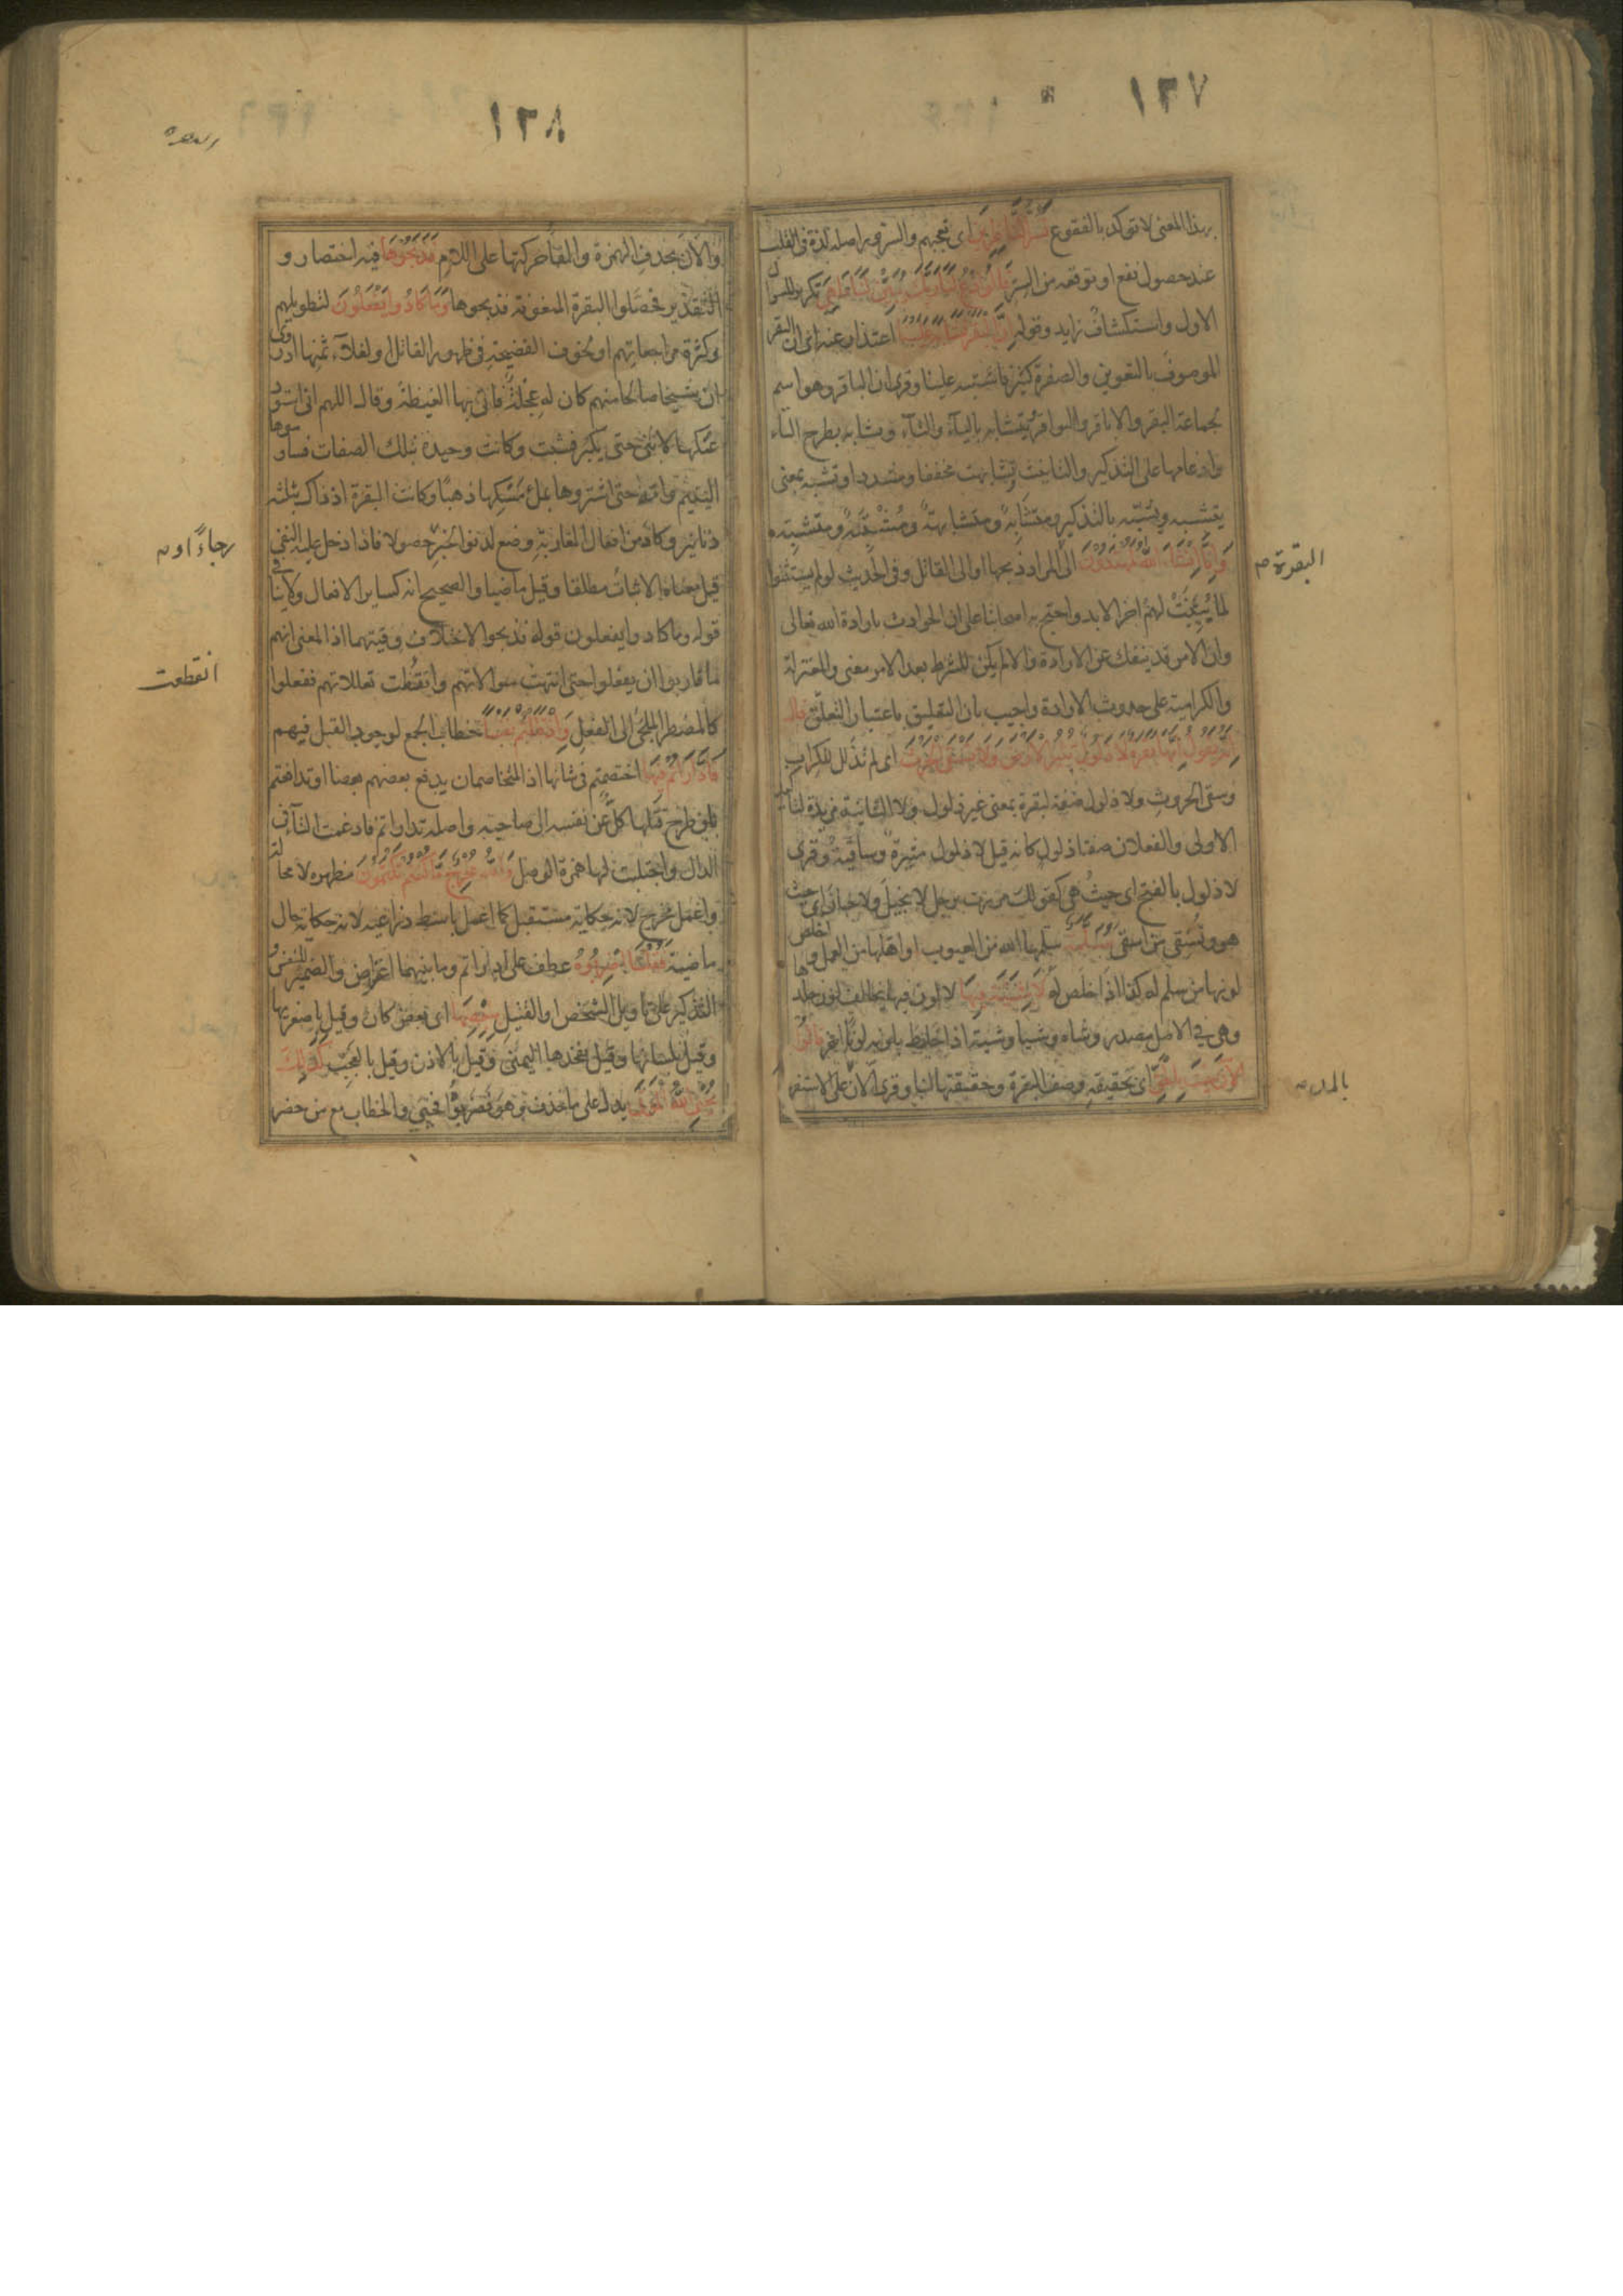 ١٣٧
بهذا المعنى لا تؤكد بالفقوع تسر الناظرين اى تعجبهم والسرور اصله لذة فى القلب
عند حصول نفع او توقعه من السر قالوا ادع لنا ربك يبين لنا ما هى تكرير للسوال
الاول واستكشاف زايد وقوله ان البقر تشابه علينا اعتذار عنه اى ان البقر
الموصوف بالتعوين والصفرة كثير فاشتبه علينا وقرى ان الباقر وهو اسم
لجماعة البقر والاباقر والبواقر ويتشابه بالياء والتاء وتشابه بطرح التاء
وادغامها على التذكير والتانيث وتشابهت مخففا ومشددا وتشبه بمعنى
يتشبه ويشبه بالتذكير ومتشابه ومتشابهة ومشتبه ومتشبه
وانا ان شاء الله لمهتدون الى المراد ذبحها او الى القاتل وفى الحديث لو لم يستثنوا
لما بينت لهم اخر الابد واحتج به اصحابنا على ان الحوادث بارادة الله تعالى
وان الامر قد ينفك عن الارادة والا لم يكن للشرط بعد الامر معنى والمعتزلة
والكرامية على حدوث الارادة واجيب بان التعليق باعتبار التعلق قال
انه يقول انها بقرة لا ذلول تثير الارض ولا تسقى الحرث اى لم تذلل للكراب
وسقى الحروث ولا ذلول صفة لبقرة بمعنى غير ذلول ولا الثانية مزيدة لتاكيد
الاولى والفعلان صفتا ذلول كانه قيل لا ذلول مثيرة وساقية وقرى
لا ذلول بالفتح اى حيث هى كقولك مررت برجل لا بخيل ولا جبان اى حيث
هو وتسقى من اسقى مسلمة سلمها الله من العيوب او اهلها من العمل او اخلص
لونها من سلم له كذا اذا خلص له لا شية فيها لا لون فيها يخالف لون جلدها
وهى فى الاصل مصدر وشاه وشيا وشية اذا خلط بلونه لونا اخر قالوا
الان جئت بالحق اى بحقيقة وصف البقرة وحققتها لنا وقرى الآن على الاستفهام
البقرة م
١٣٨
والان بحذف الهمزة والقاء حركتها على اللام فذبحوها فيه اختصار و
التقدير فحصلوا البقرة المنعوتة فذبحوها وما كادوا يفعلون لتطويلهم
وكثرة مراجعاتهم او لخوف الفضيحة فى ظهور القاتل او لغلاء ثمنها اذ روى
ان شيخا صالحا منهم كان له عجلة فاتى بها الغيضة وقال اللهم انى استودعـ
ـتكها لابنى حتى يكبر فشبت وكانت وحيدة بتلك الصفات فساوموها
اليتيم وامه حتى اشتروها بملء مسكها ذهبا وكانت البقرة اذ ذاك بثلثة
دنانير وكاد من افعال المقاربة وضع لدنو الخبر حصولا فاذا دخل عليه النفى
قيل معناه الاثبات مطلقا وقيل ماضيا والصحيح انه كساير الافعال ولا ينافى
قوله وما كادوا يفعلون قوله فذبحوها لاختلاف وقتيهما اذ المعنى انهم
ما قاربوا ان يفعلوا حتى انتهت سوالاتهم وانقطعت تعللاتهم ففعلوا
كالمضطر الملجئ الى الفعل واذ قتلتم نفسا خطاب الجمع لوجود القتل فيهم
فادارأتم فيها اختصمتم فى شانها اذ المتخاصمان يدفع بعضهم بعضا او تدافعتم
بان طرح قتلها كل عن نفسه الى صاحبه واصله تداراتم فادغمت التاء فى
الدال واجتلبت لها همزة الوصل والله مخرج ما كنتم تكتمون مظهره لا محالة
واعمل مخرج لانه حكاية مستقبل كما اعمل باسط ذراعيه لانه حكاية حال
ماضية فقلنا اضربوه عطف على اداراتم وما بينهما اعتراض والضمير للنفس و
التذكير على تاويل الشخص او القتيل ببعضها اى بعض كان وقيل باصغريها
وقيل بلسانها وقيل بفخذها اليمنى وقيل بالاذن وقيل بالعجب كذلك
يحيى الله الموتى يدل على ما حذف وهو فضربوه فحيى والخطاب مع من حضر
انقطعت